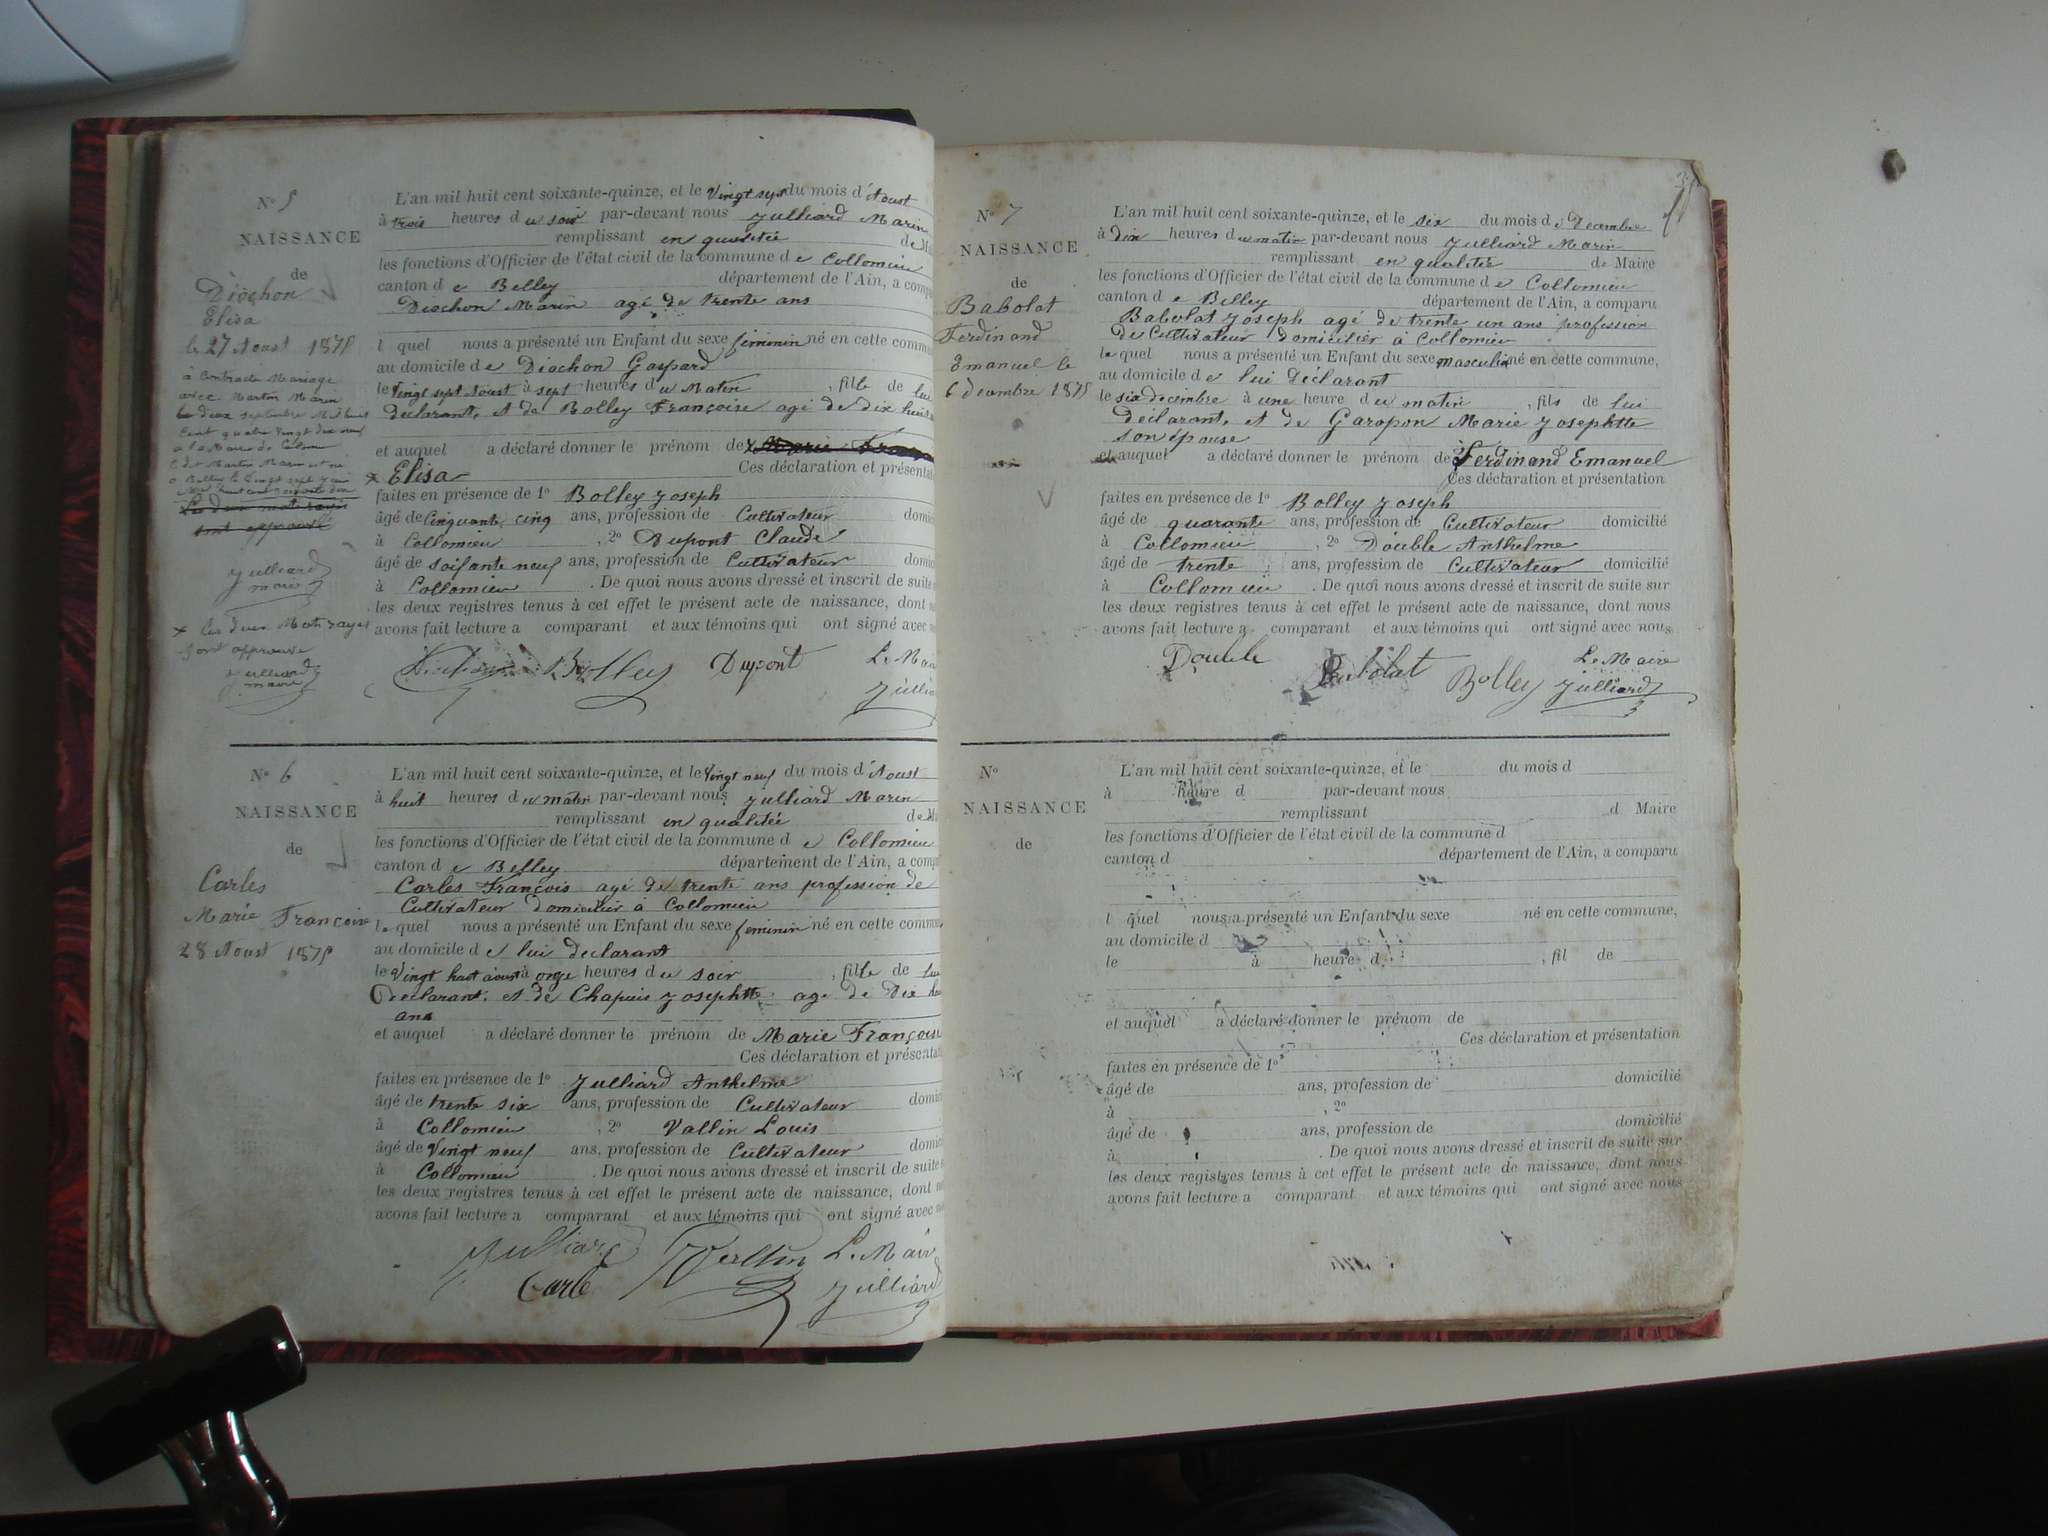 N° 5
NAISSANCE
de
Diochon
Elisa
le 27 Aoust 1875
à Contracté Mariage
avec Martin Marin
le deux septembre Mil huit
Cent quatre vingt dix neuf
a la Mairie de Colomieu
Martin Marin est né
Belley le Vingt sept
mil huit cent soixante dix
Les deux mots rayés
sont approuvé
Julliard
maire
x les deux Mots rayés
sont approuvé
Julliard
maire
L'an mil huit cent soixante-quinze, et le Vingt sept du mois d'Aoust
à trois heures du soir par-devant nous Julliard Marin
remplissant en qualitée de
les fonctions d'Officier de l'état civil de la commune de Collomieu
canton de Belley département de l'Ain, a compa
Diochon Marin agé de trente ans
l quel nous a présenté un Enfant du sexe feminin né en cette comm
au domicile de Diochon Gaspard
le Vingt sept Aoust à sept heures du Matin , fille de lui
declarant, et de Bolley Françoise agé de dix huit
et auquel a déclaré donner le prénom de x Marie Fran
x Elisa Ces déclaration et présentat
faites en présence de 1° Bolley Joseph
âgé de Cinquante cinq ans, profession de Cultivateur domici
à Collomieu , 2° Dupont Claude
âgé de soixante neuf ans, profession de Cultivateur domici
à Collomieu . De quoi nous avons dressé et inscrit de suite
les deux registres tenus à cet effet le présent acte de naissance, dont
avons fait lecture a comparant et aux témoins qui ont signé avec
Bolley Dupont Le Mai
Julliard
N° 6
NAISSANCE
de
Carles
Marie Françoise
28 Aoust 1875
L'an mil huit cent soixante-quinze, et le Vingt neuf du mois d'Aoust
à huit heures du matin par-devant nous Julliard Marin
remplissant en qualitée de
les fonctions d'Officier de l'état civil de la commune de Collomieu
canton de Belley département de l'Ain, a compa
Carles François agé de trente ans profession de
Cultivateur domicilier à Collomieu
le quel nous a présenté un Enfant du sexe feminin né en cette commu
au domicile de lui declarant
le Vingt huit aoust à onze heures du soir , fille de lui
Declarant. et de Chapuis Josephtte agé de Dix
ans
et auquel a déclaré donner le prénom de Marie Françoise
Ces déclaration et présentat
faites en présence de 1° Julliard Anthelme
âgé de trente six ans, profession de Cultivateur domici
à Collomieu , 2° Vallin Louis
âgé de Vingt neuf ans, profession de Cultivateur domici
à Collomieu . De quoi nous avons dressé et inscrit de suite
les deux registres tenus à cet effet le présent acte de naissance, dont
avons fait lecture a comparant et aux témoins qui ont signé avec
Julliard Le Mair
Carle Julliard
N° 7
NAISSANCE
de
Babolat
Ferdinand
Emanuel le
6 decembre 1875
L'an mil huit cent soixante-quinze, et le six du mois de Decembre
à dix heures du matin par-devant nous Julliard Marin
remplissant en qualitée de Maire
les fonctions d'Officier de l'état civil de la commune de Collomieu
canton de Belley département de l'Ain, a comparu
Babolat Joseph agé de trente un ans profession
de Cultivateur domicilier à Collomieu
le quel nous a présenté un Enfant du sexe masculin né en cette commune,
au domicile de lui Déclarant
le six decembre à une heure du matin , fils de lui
déclarant, et de Garopon Marie Josephtte
son épouse
et auquel a déclaré donner le prénom de Ferdinand Emanuel
Ces déclaration et présentation
faites en présence de 1° Bolley Joseph
âgé de quarante ans, profession de Cultivateur domicilié
à Collomieu , 2° Double Anthelme
âgé de trente ans, profession de Cultivateur domicilié
à Collomieu . De quoi nous avons dressé et inscrit de suite sur
les deux registres tenus à cet effet le présent acte de naissance, dont nous
avons fait lecture a comparant et aux témoins qui ont signé avec nous
Le Maire
Double Babolat Bolley Julliard
N°
NAISSANCE
de
L'an mil huit cent soixante-quinze, et le du mois d
à heure d par-devant nous
remplissant d Maire
les fonctions d'Officier de l'état civil de la commune d
canton d département de l'Ain, a comparu
l quel nous a présenté un Enfant du sexe né en cette commune,
au domicile d
le à heure d , fil de
et auquel a déclaré donner le prénom de
Ces déclaration et présentation
faites en présence de 1°
âgé de ans, profession de domicilié
à , 2°
âgé de ans, profession de domicilié
à . De quoi nous avons dressé et inscrit de suite sur
les deux registres tenus à cet effet le présent acte de naissance, dont nous
avons fait lecture a comparant et aux témoins qui ont signé avec nous